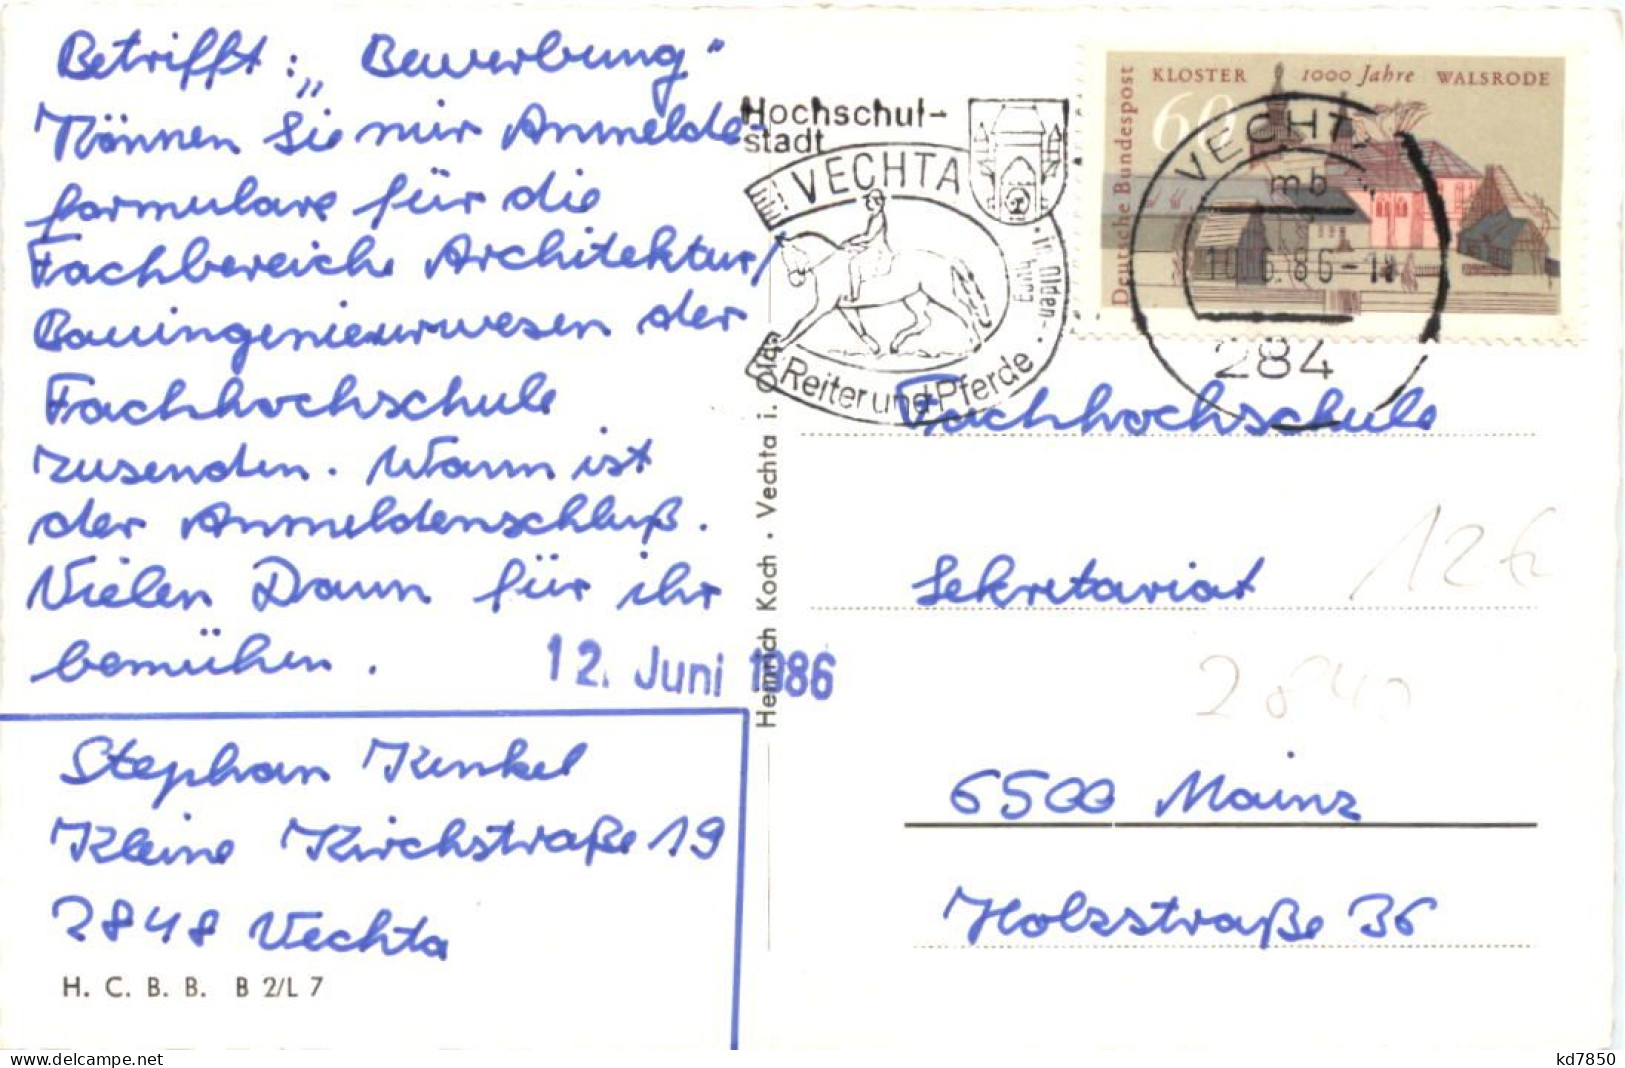 Betrifft: „Bewerbung"
Können Sie mir Anmelde-
formulare für die
Fachbereiche Architektur/
Bauingenieurwesen der
Fachhochschule
zusenden. Wann ist
der Anmeldenschluß.
Vielen Dann für ihr
bemühen.
12. Juni 1986
Stephan Kunkel
Kleine Kirchstraße 19
2848 Vechta
H. C. B. B. B 2/L 7
Heinrich Koch · Vechta i. Oldb
Hochschul-
stadt
VECHTA
in Olden-
Reiter und Pferde
KLOSTER 1000 Jahre WALSRODE
60
Deutsche Bundespost
VECHTA
mb
10.6.86
284
Fachhochschule
Sekretariat
6500 Mainz
Holzstraße 36
2840
www.delcampe.net
kd7850